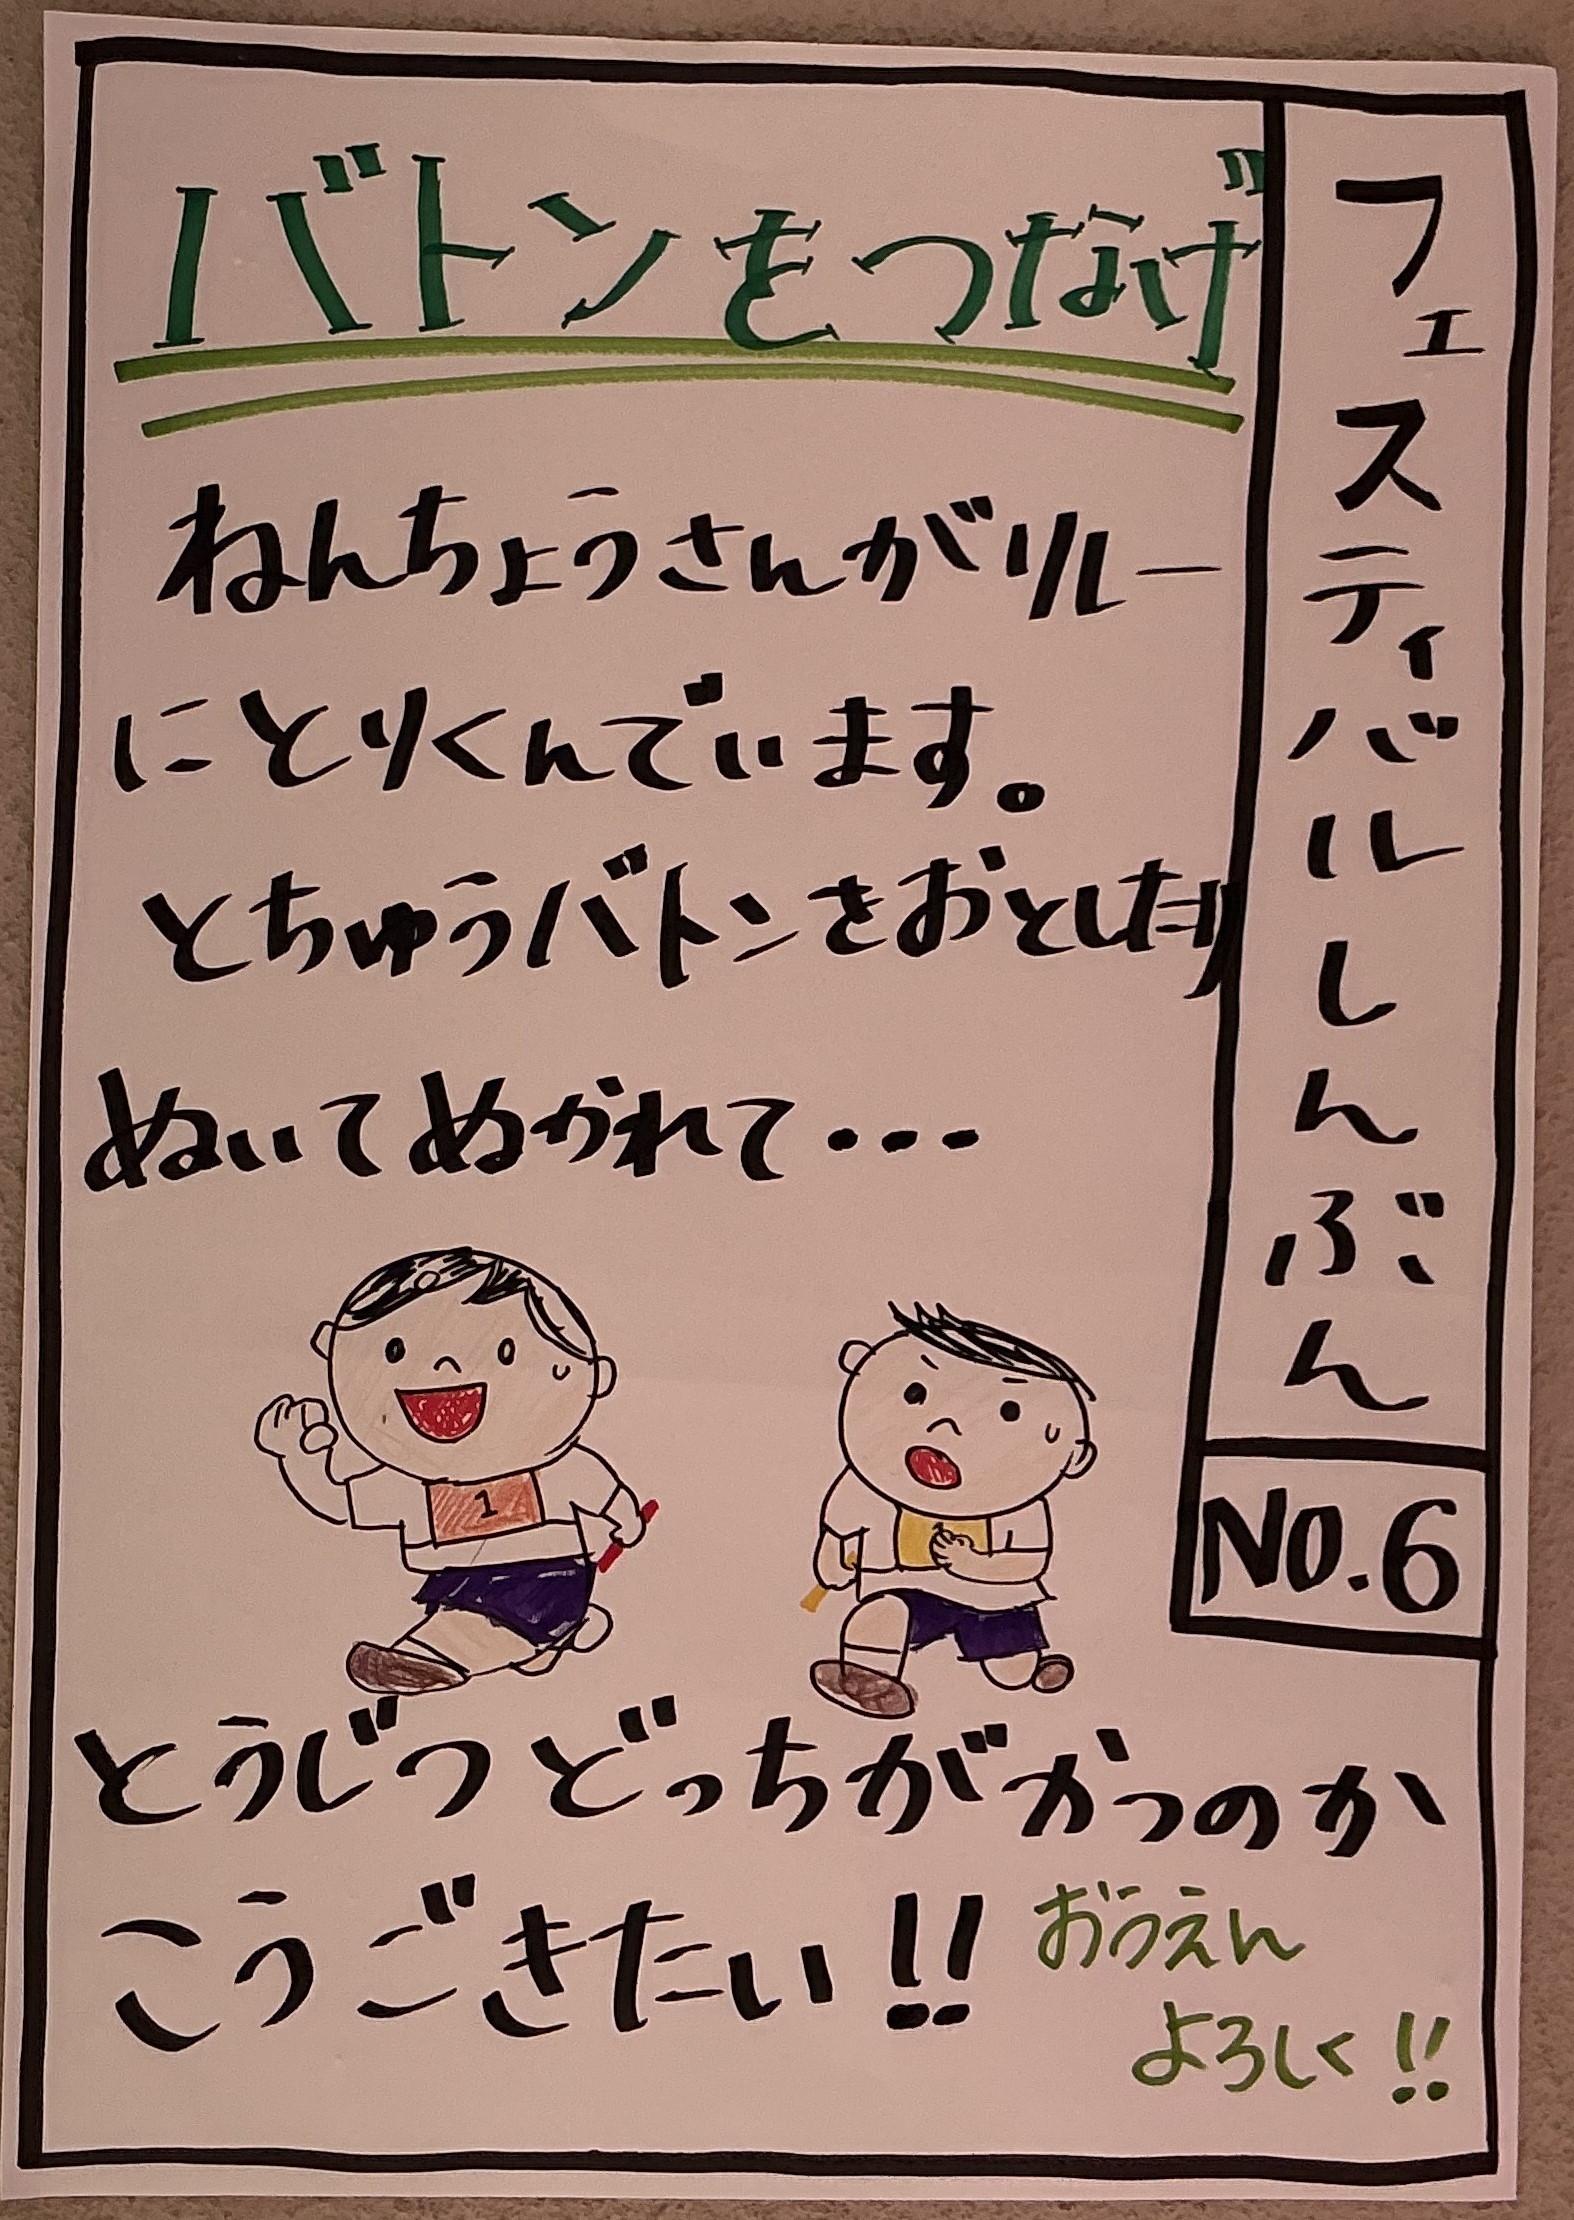 フェスティバルしんぶん
No.6
バトンをつなげ
ねんちょうさんがリレー
にとりくんでいます。
とちゅうバトンをおとしたり
ぬいてぬかれて・・・
1
とうじつどっちがかつのか
こうごきたい!!
おうえん
よろしく!!